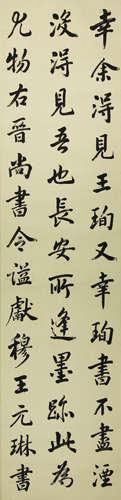 幸余得見王珣又幸珣書不盡湮
沒得見吾也長安所逢墨跡此為
尤物右晉尚書令諡獻穆王元琳書